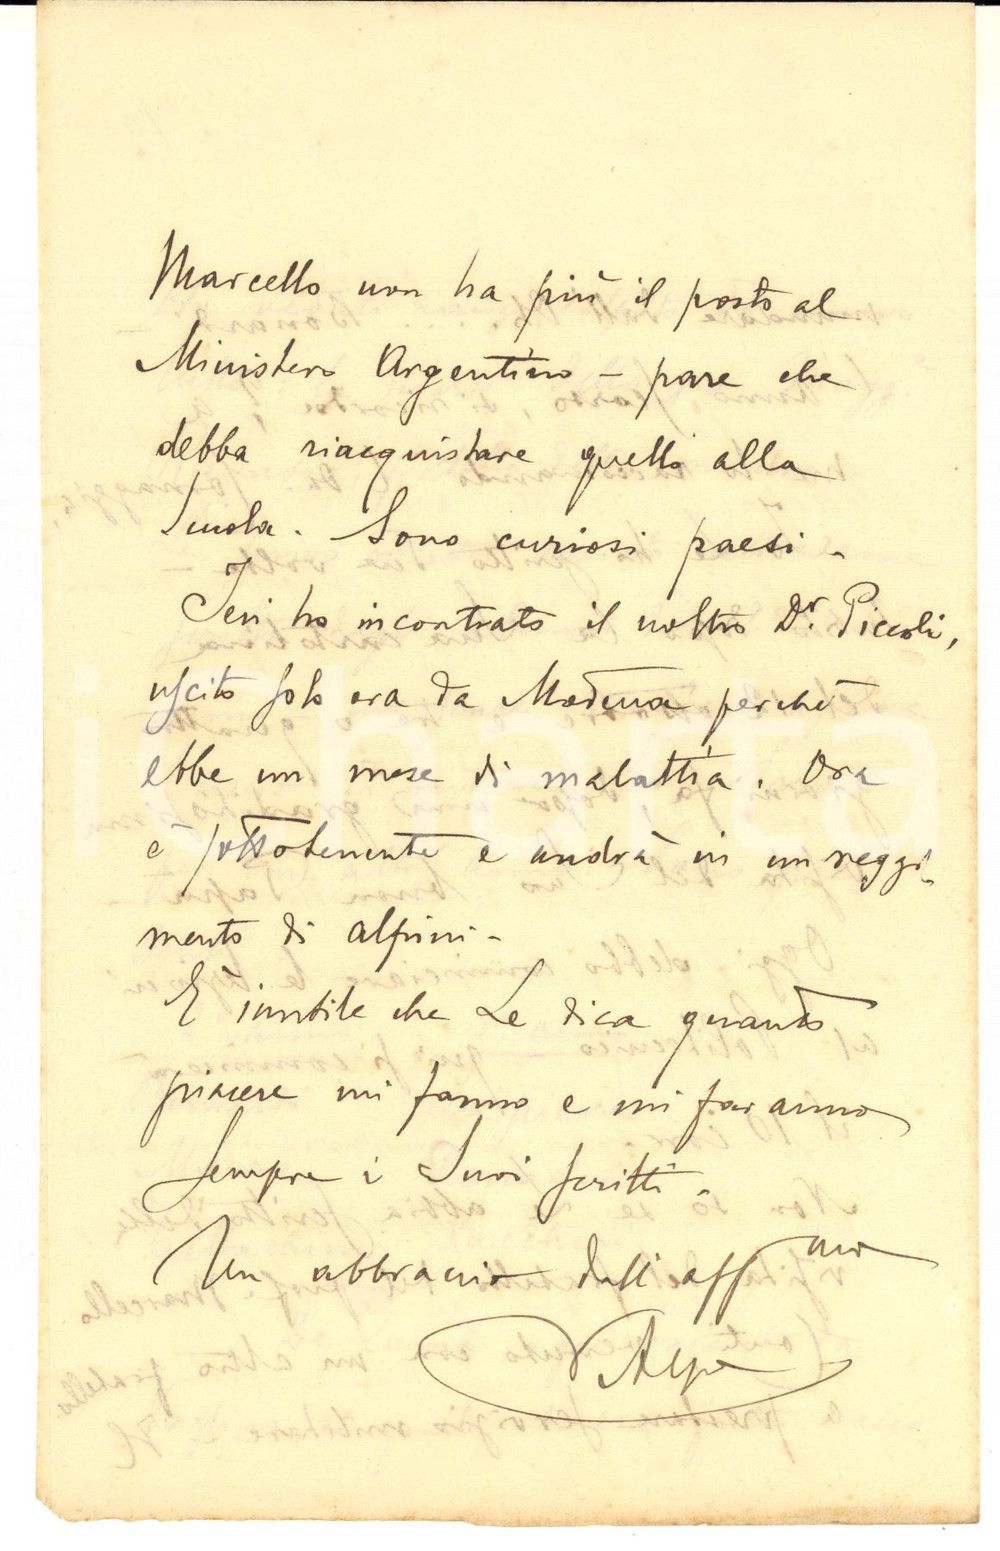 Marcello non ha più il posto al
Ministero Argentino – pare che
debba riacquistare quello alla
Scuola. Sono curiosi paesi.
Ieri ho incontrato il nostro Dr. Piccoli,
uscito solo ora da Modena perché
ebbe un mese di malattia. Ora
è sottotenente e andrà in un reggi-
mento di alpini.
È inutile che Le dica quanto
piacere mi fanno e mi faranno
sempre i Suoi scritti.
Un abbraccio dall'affmo